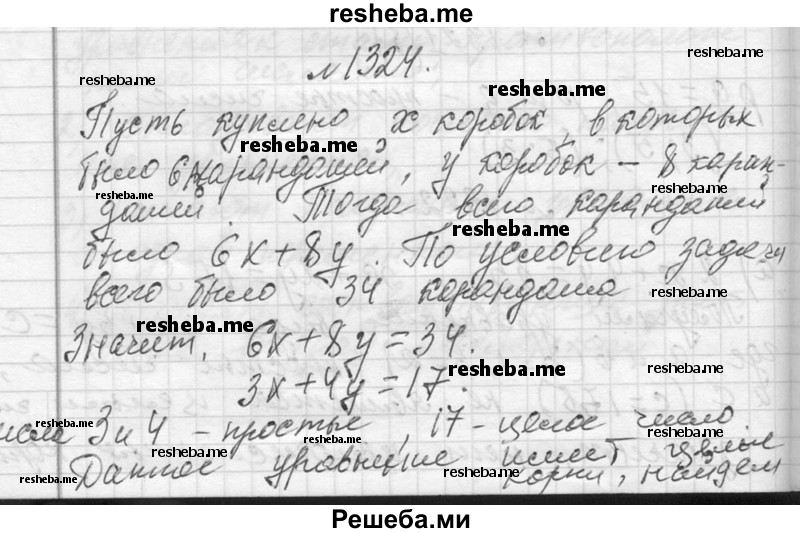 resheba.me
№1324.
resheba.me
resheba.me
Пусть куплено x коробок, в которых
resheba.me
resheba.me
было 6 карандашей, y коробок – 8 каран-
resheba.me
resheba.me
дашей. Тогда всего карандашей
resheba.me
resheba.me
было 6x+8y. По условию задачи
всего было 34 карандаша
resheba.me
resheba.me
Значит, 6x+8y=34.
resheba.me
resheba.me
3x+4y=17.
числа 3 и 4 – простые, 17 – целое число.
resheba.me
resheba.me
resheba.me
Данное уравнение имеет целые
корни, найдем
resheba.me
resheba.me
resheba.me
Решеба.ми